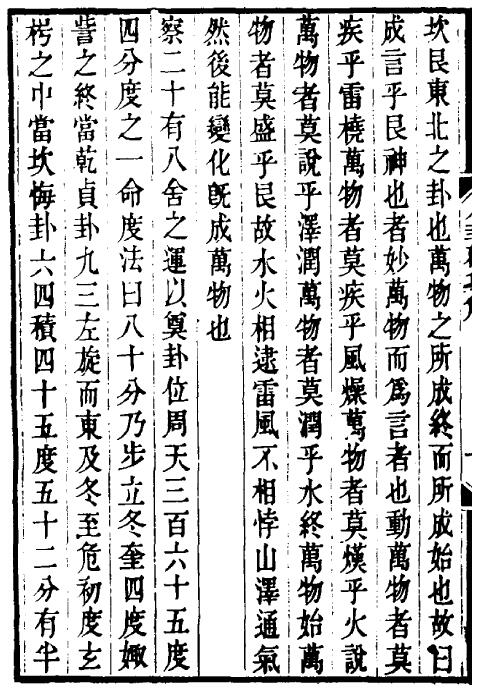 坎艮東北之卦也萬物之所成終而所成始也故曰
成言乎艮神也者妙萬物而爲言者也動萬物者莫
疾乎雷橈萬物者莫疾乎風燥萬物者莫熯乎火說
萬物者莫說乎澤潤萬物者莫潤乎水終萬物始萬
物者莫盛乎艮故水火相逮雷風不相悖山澤通氣
然後能變化旣成萬物也
察二十有八舍之運以奠卦位周天三百六十五度
四分度之一命度法曰八十分乃步立冬奎四度娵
訾之終當乾貞卦九三左旋而東及冬至危初度玄
枵之中當坎悔卦六四積四十五度五十二分有半